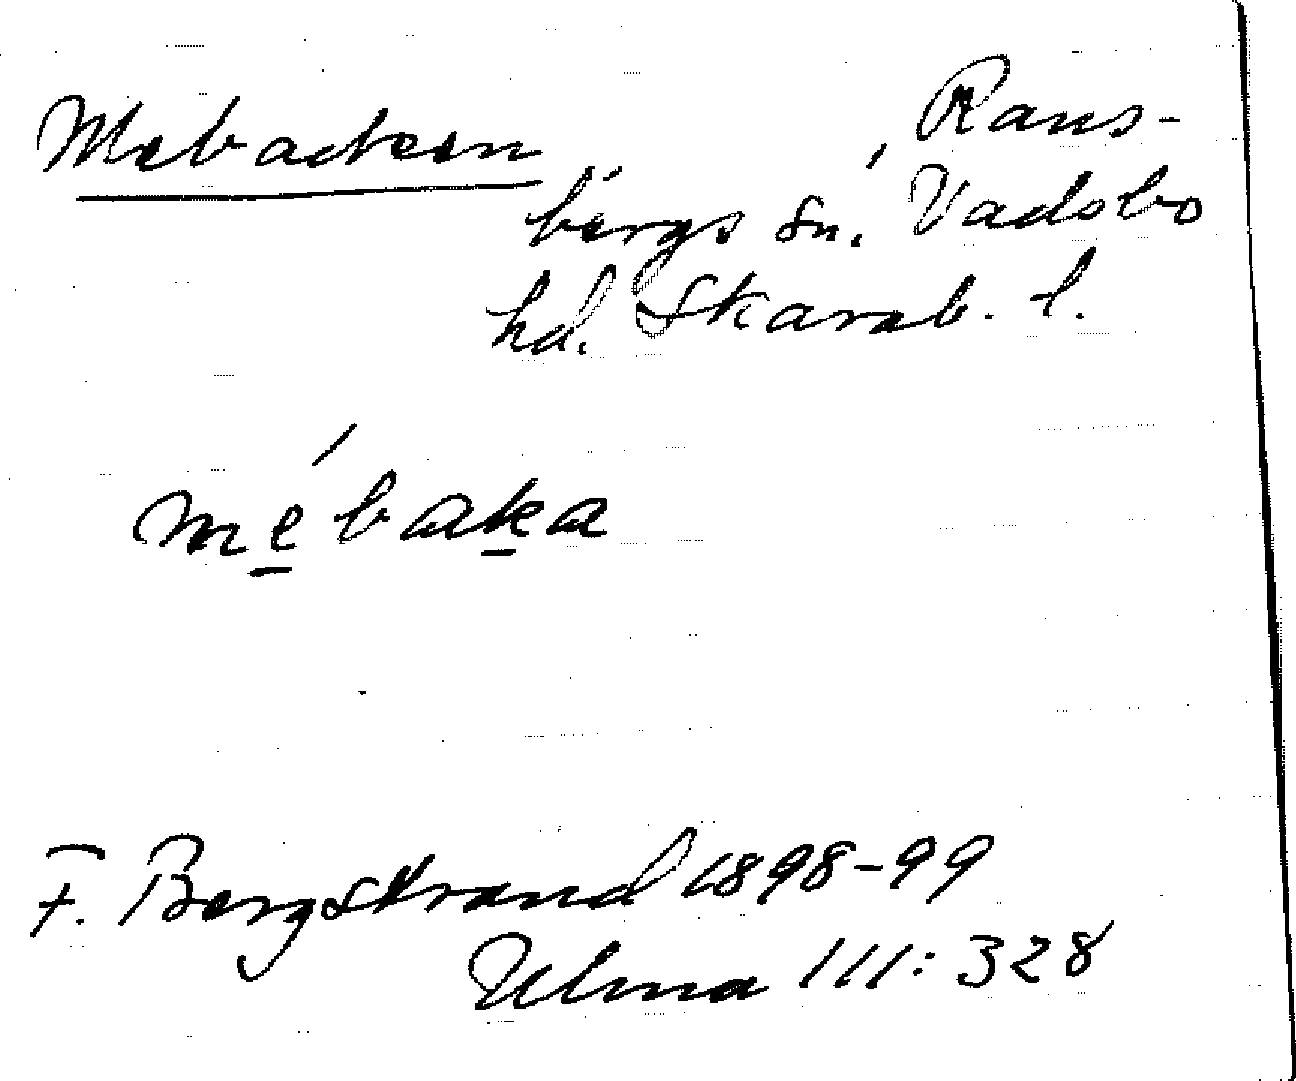 Mebacken , Rans-
bergs sn. Vadsbo
hd. Skarab. l.
mébaka
F. Bergstrand 1898-99
Ulma 111:328